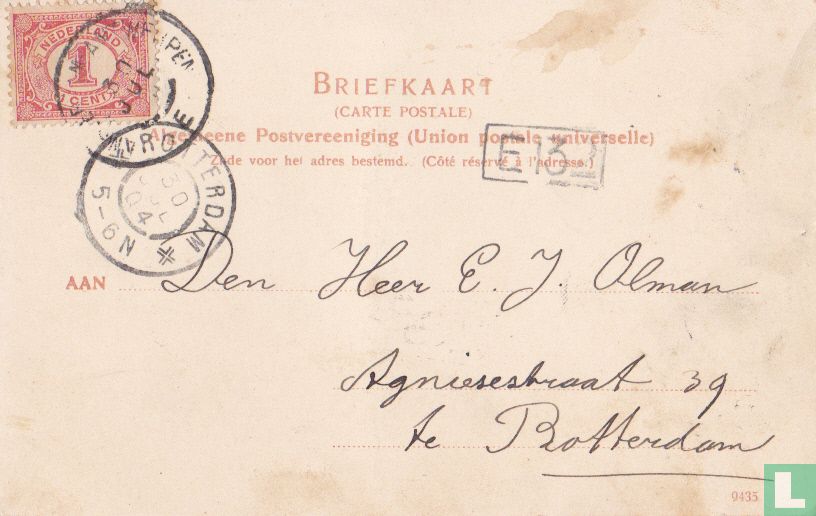 NEDERLAND
1
CENT
BRIEFKAART
(CARTE POSTALE)
Algemeene Postvereeniging (Union postale universelle)
Zijde voor het adres bestemd. (Côté réservé à l'adresse.)
ROTTERDAM
30
JUL
04
5-6N
E13
AAN Den Heer E. J. Olman
Agniesestraat 39
te Rotterdam
9435
L